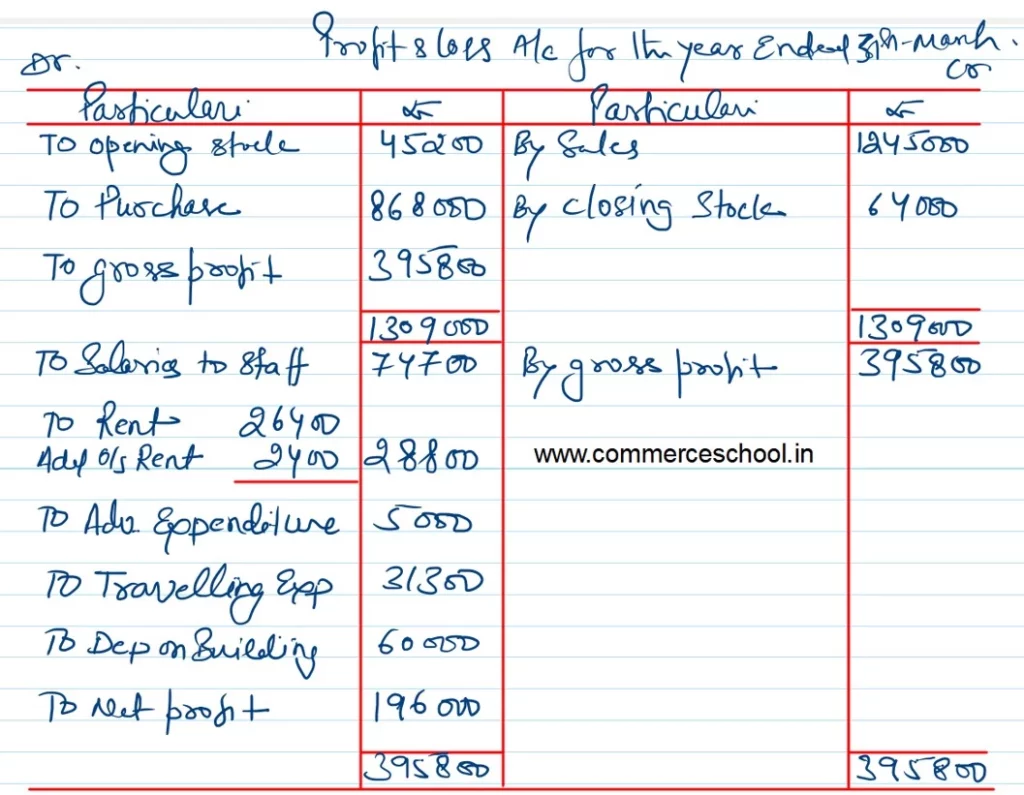 Profit & Loss A/c for the year Ended 31st March.
Dr. Cr
Particulars ₹ Particulars ₹
To opening stock 45200 By Sales 1245000
To Purchase 868000 By closing Stock 64000
To gross profit 395800
1309000 1309000
To Salaries to staff 74700 By gross profit 395800
To Rent 26400
Add O/s Rent 2400 28800 www.commerceschool.in
To Adv. Expenditure 5000
To Travelling Exp 31300
To Dep on Building 60000
To Net profit 196000
395800 395800